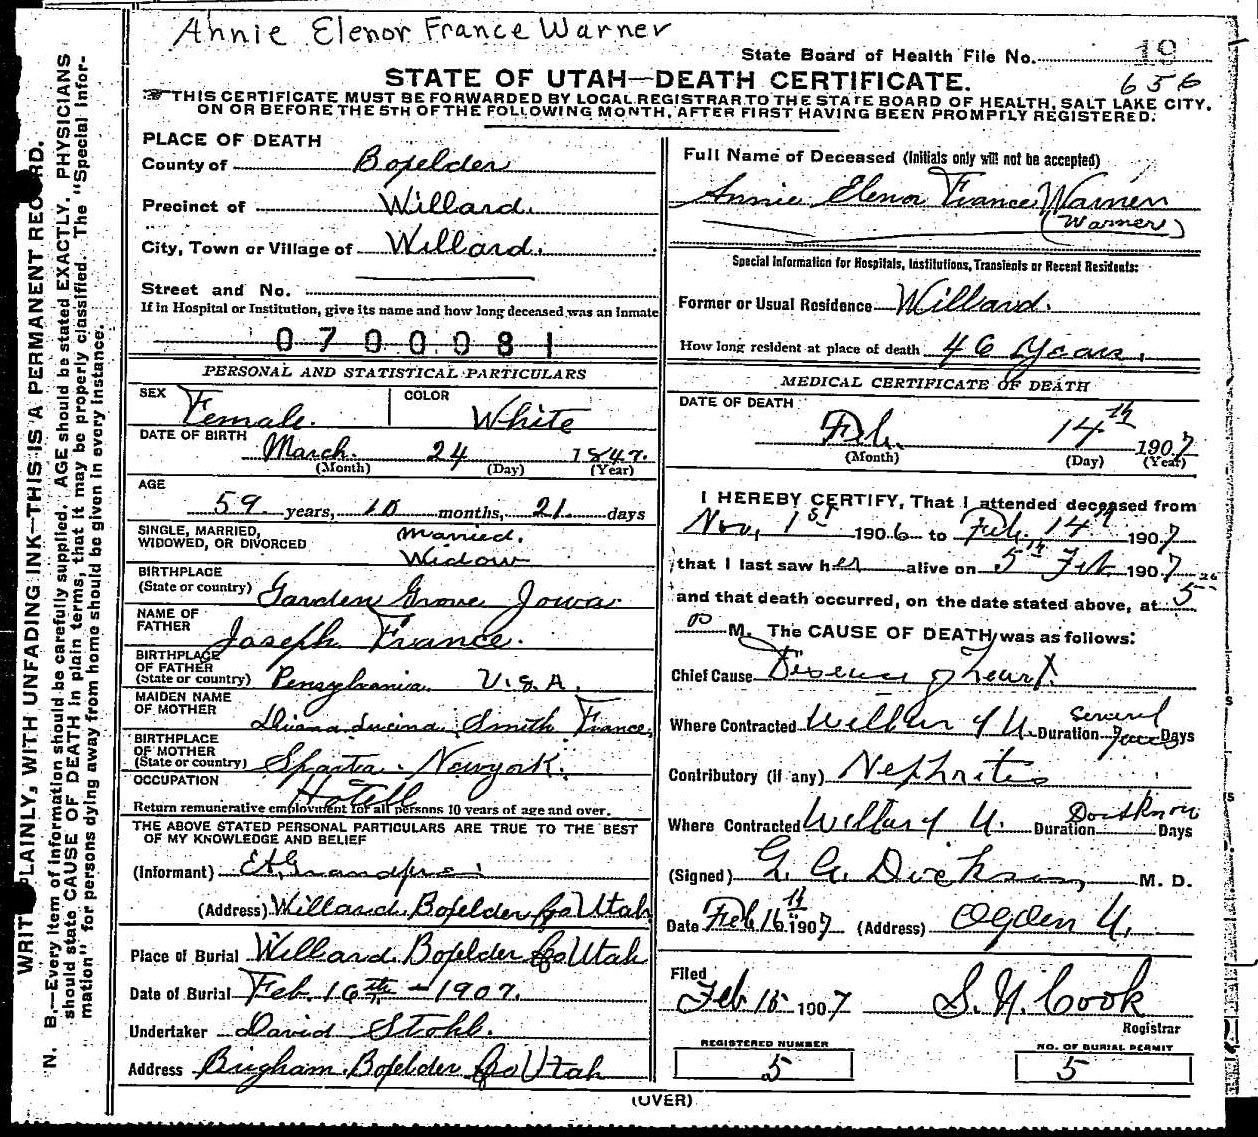 Annie Elenor France Warner
State Board of Health File No. 19
656
STATE OF UTAH—DEATH CERTIFICATE.
THIS CERTIFICATE MUST BE FORWARDED BY LOCAL REGISTRAR TO THE STATE BOARD OF HEALTH, SALT LAKE CITY,
ON OR BEFORE THE 5TH OF THE FOLLOWING MONTH, AFTER FIRST HAVING BEEN PROMPTLY REGISTERED.
WRITE PLAINLY, WITH UNFADING INK—THIS IS A PERMANENT RECORD.
N. B.—Every item of information should be carefully supplied. AGE should be stated EXACTLY. PHYSICIANS
should state CAUSE OF DEATH in plain terms, that it may be properly classified. The "Special Infor-
mation" for persons dying away from home should be given in every instance.
PLACE OF DEATH
County of Boxelder
Precinct of Willard.
City, Town or Village of Willard.
Street and No.
If in Hospital or Institution, give its name and how long deceased was an Inmate
0700081
PERSONAL AND STATISTICAL PARTICULARS
SEX Female. COLOR White
DATE OF BIRTH March. 24 1847.
(Month) (Day) (Year)
AGE
59 years, 10 months, 21 days
SINGLE, MARRIED,
WIDOWED, OR DIVORCED
Married.
Widow
BIRTHPLACE
(State or country) Garden Grove Iowa
NAME OF
FATHER Joseph France.
BIRTHPLACE
OF FATHER
(State or country) Pensylvania U.S.A.
MAIDEN NAME
OF MOTHER Diana Lucina Smith France
BIRTHPLACE
OF MOTHER
(State or country) Sparta. Newyork.
OCCUPATION Hotell
Return remunerative employment for all persons 10 years of age and over.
THE ABOVE STATED PERSONAL PARTICULARS ARE TRUE TO THE BEST
OF MY KNOWLEDGE AND BELIEF
(Informant)
(Address) Willard. Boxelder Co Utah
Place of Burial Willard Boxelder Co Utah
Date of Burial Feb. 16th - 1907.
Undertaker David Stohl.
Address Brigham. Boxelder Co Utah
Full Name of Deceased (Initials only will not be accepted)
Annie Elenor France Warner
(Warner)
Special Information for Hospitals, Institutions, Transients or Recent Residents:
Former or Usual Residence Willard.
How long resident at place of death 46 Years.
MEDICAL CERTIFICATE OF DEATH
DATE OF DEATH
Feb. 14th 1907
(Month) (Day) (Year)
I HEREBY CERTIFY, That I attended deceased from
Nov, 1st 1906 to Feb. 14th 1907
that I last saw her alive on 5th Feb. 1907
and that death occurred, on the date stated above, at 5
M. The CAUSE OF DEATH was as follows:
Chief Cause Disease of heart.
Where Contracted Willard U. Duration Several Years Days
Contributory (if any) Nephritis
Where Contracted Willard U. Duration Dont Know Days
(Signed) G. A. Dickson, M. D.
Date Feb 16th 1907 (Address) Ogden U.
Filed
Feb 15 1907 S. N. Cook
Registrar
REGISTERED NUMBER
5
NO. OF BURIAL PERMIT
5
(OVER)